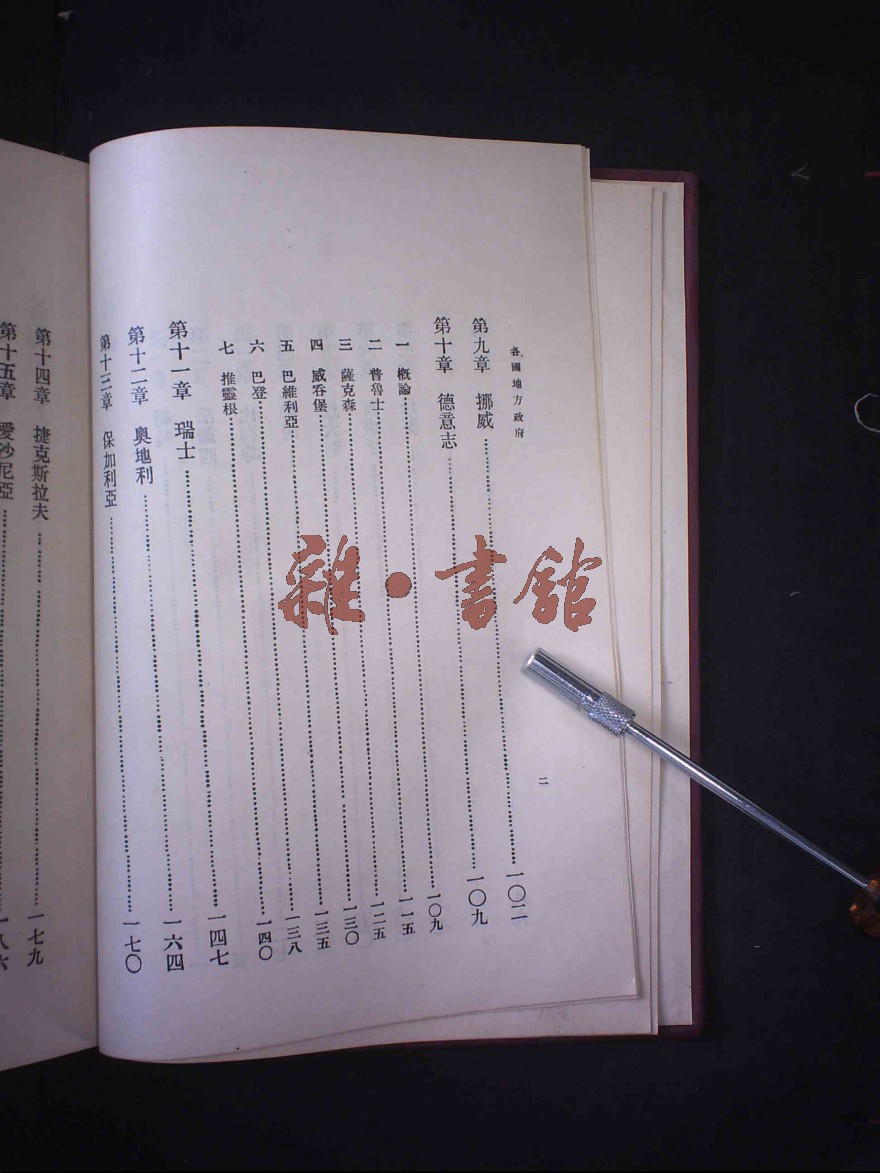 各國地方政府
二
第九章 挪威……一〇二
第十章 德意志……一〇九
一 概論……一〇九
二 普魯士……一一五
三 薩克森……一二五
四 威吞堡……一三〇
五 巴維利亞……一三五
六 巴登……一三八
七 推靈根……一四〇
第十一章 瑞士……一四七
第十二章 奧地利……一六四
第十三章 保加利亞……一七〇
第十四章 捷克斯拉夫……一七九
第十五章 愛沙尼亞……一八六
雜·書館